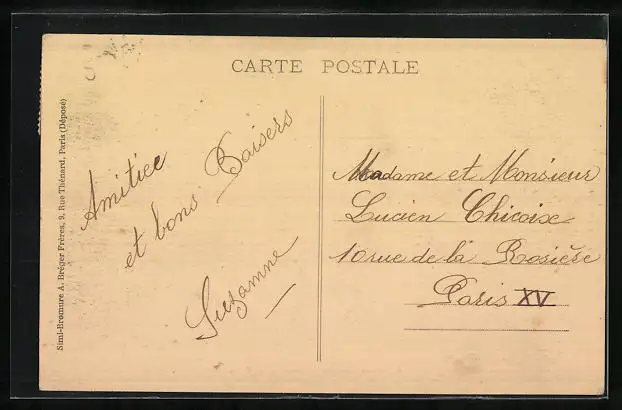 CARTE POSTALE
Simi-Bromure A. Bréger Frères, 9, Rue Thénard, Paris (Déposé)
Amitiée
et bons Baisers
Suzanne
Madame et Monsieur
Lucien Chicoise
10 rue de la Rosière
Paris XV